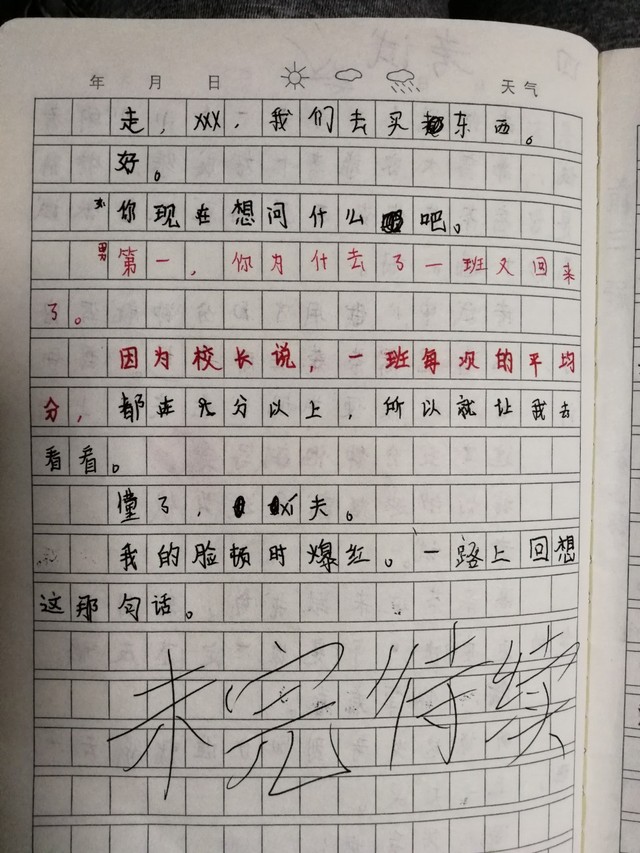 年 月 日 天气
走，XXX，我们去买东西。
好。
女 你现在想问什么吧。
男 第一，你为什去了一班又回来
了。
因为校长说，一班每次的平均
分，都在九分以上，所以就让我去
看看。
懂了，夫。
我的脸顿时爆红。一路上回想
这那句话。
未完待续